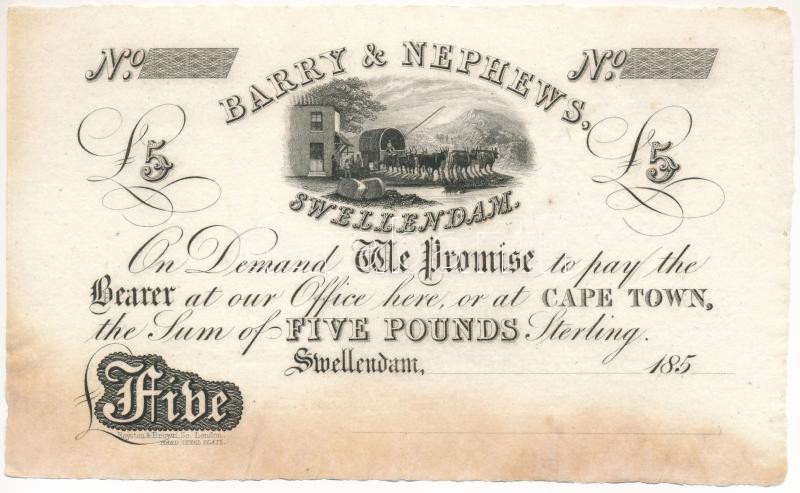 No.
No.
BARRY & NEPHEWS,
£5
£5
SWELLENDAM.
On Demand We Promise to pay the
Bearer at our Office here, or at CAPE TOWN,
the Sum of FIVE POUNDS Sterling.
Swellendam, 185
£Five
Royston & Brown, Sc. London.
HARD STEEL PLATE.